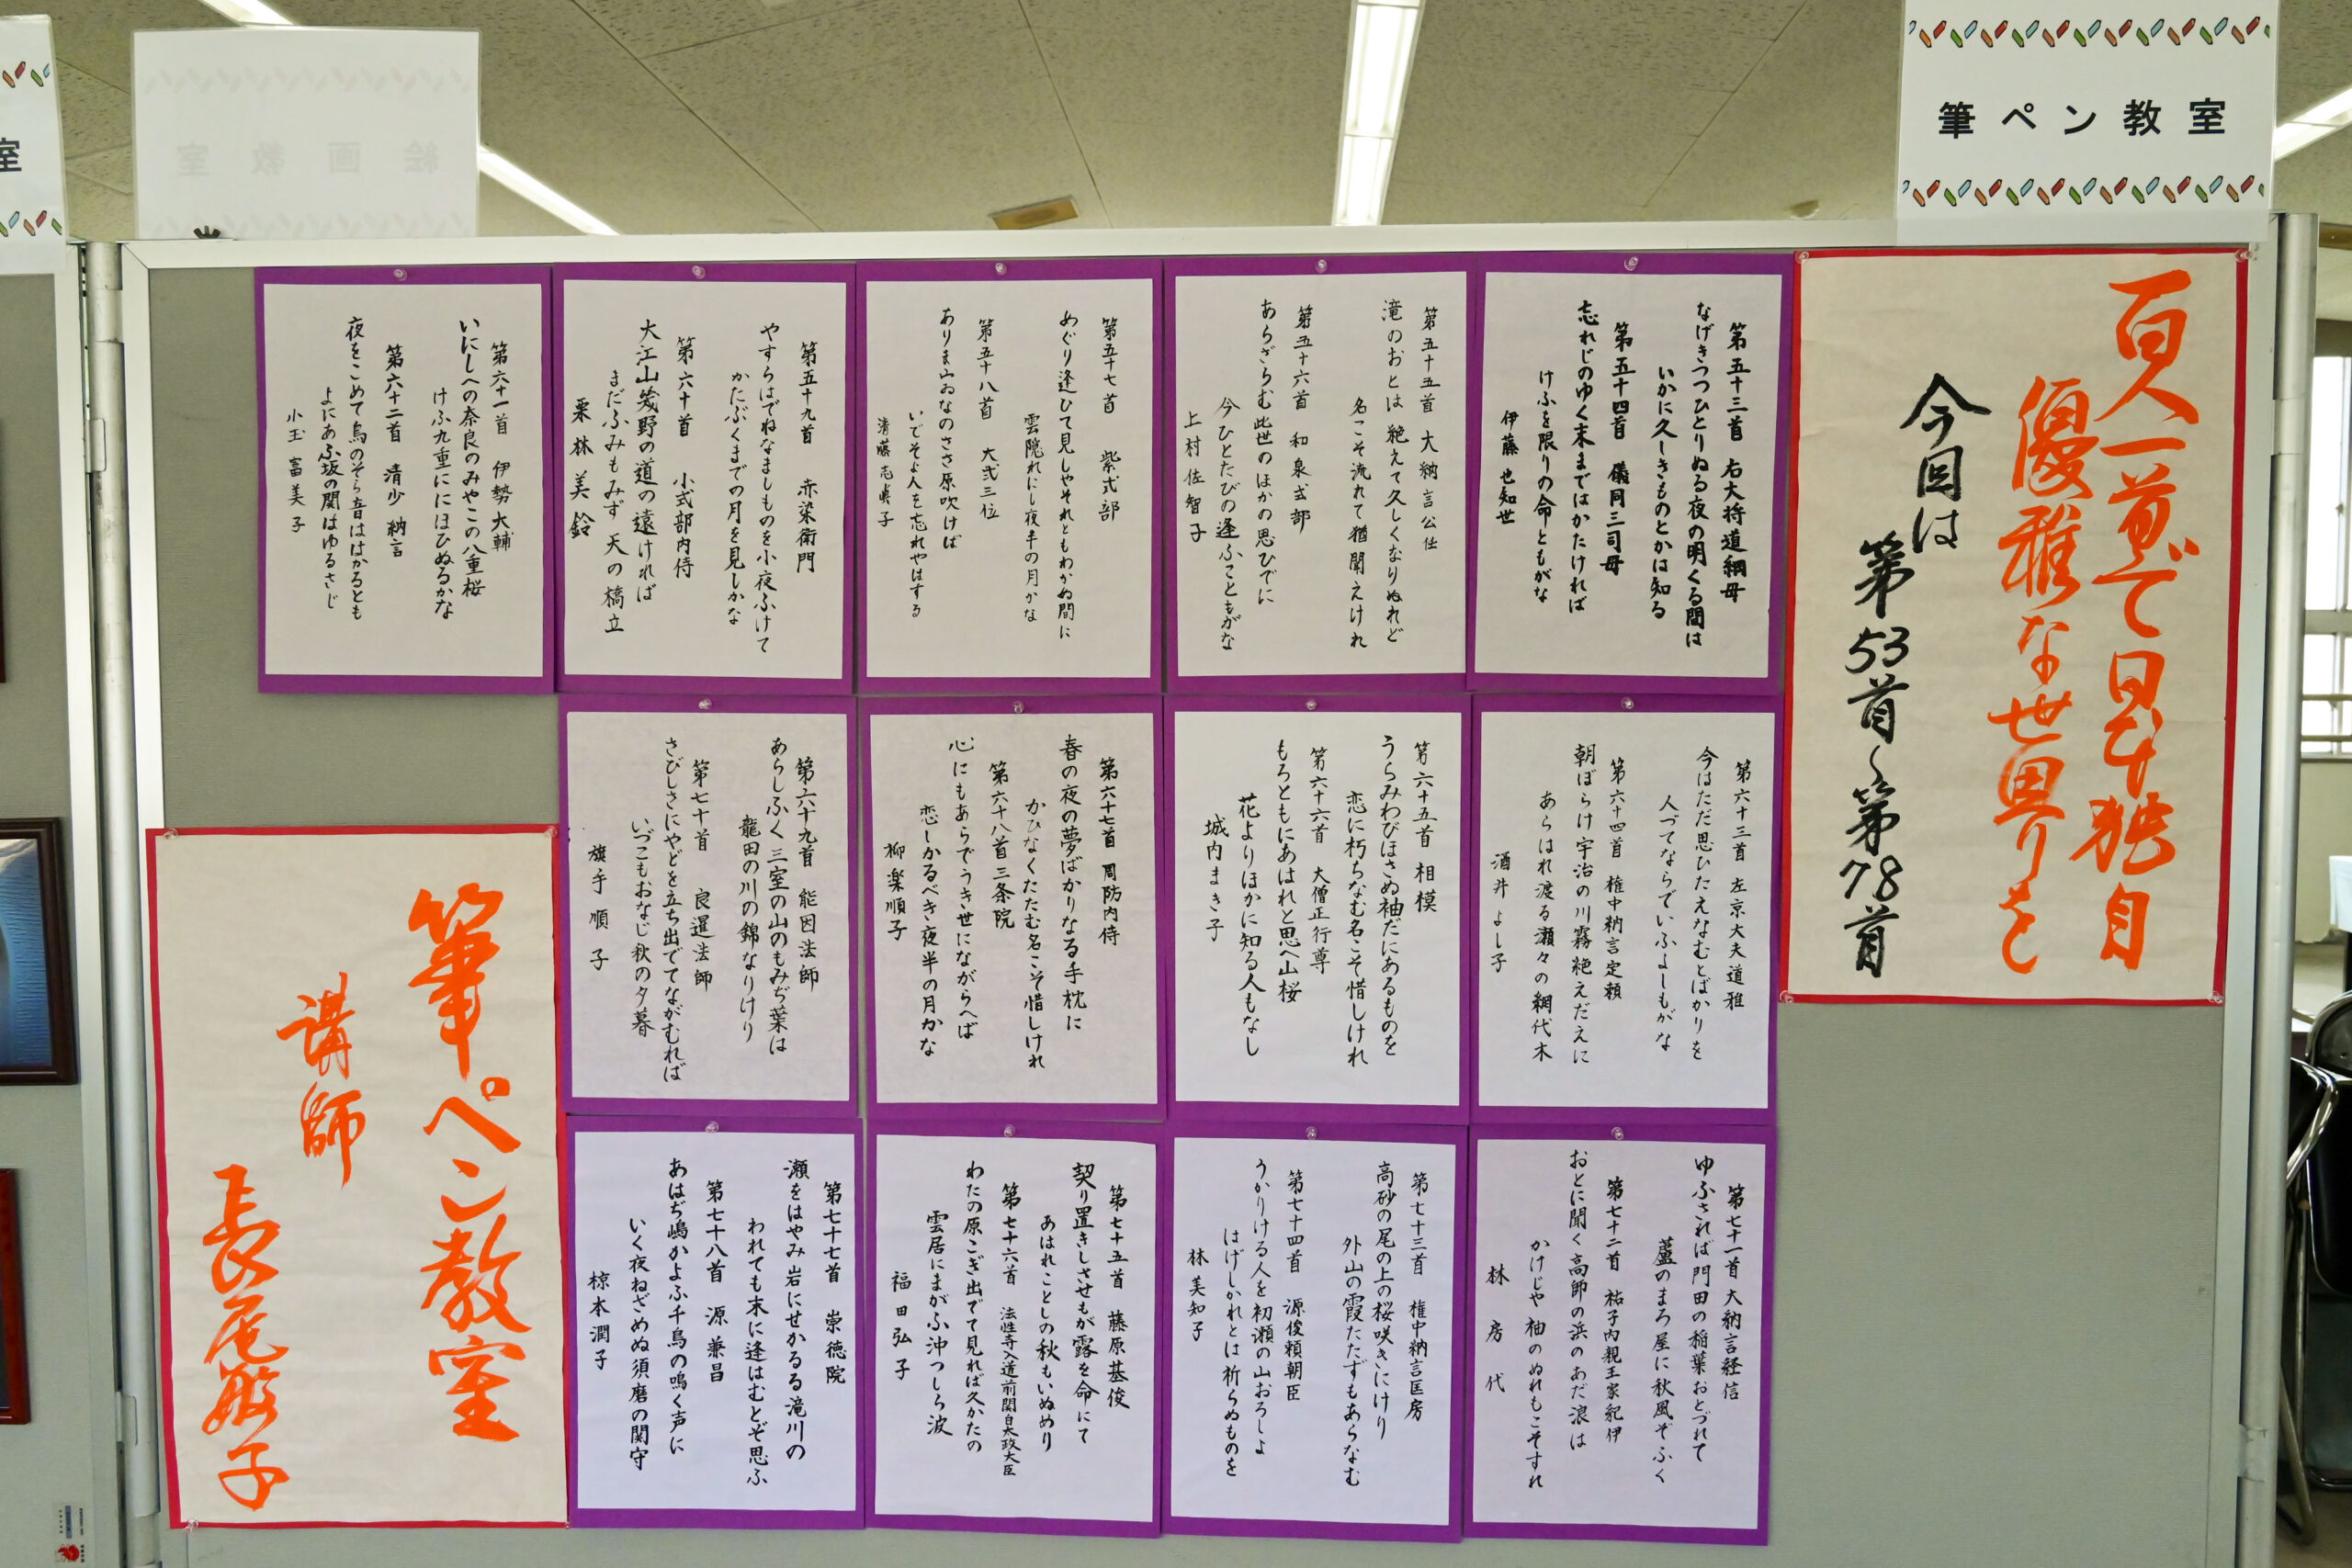 筆ペン教室
室
百人一首で日本独自
優雅な世界りを
今回は
第53首〜第78首
第五十三首 右大将道綱母
なげきつつひとりぬる夜の明くる間は
いかに久しきものとかは知る
第五十四首 儀同三司母
忘れじのゆく末まではかたければ
けふを限りの命ともがな
伊藤 也知世
第五十五首 大納言公任
滝のおとは絶えて久しくなりぬれど
名こそ流れて猶聞えけれ
第五十六首 和泉式部
あらざらむ此世のほかの思ひでに
今ひとたびの逢ふこともがな
上村佐智子
第五十七首 紫式部
めぐり逢ひて見しやそれともわかぬ間に
雲隠れにし夜半の月かな
第五十八首 大弐三位
ありま山ゐなのささ原吹けば
いでそよ人を忘れやはする
清藤志眞子
第五十九首 赤染衛門
やすらはでねなましものを小夜ふけて
かたぶくまでの月を見しかな
第六十首 小式部内侍
大江山幾野の道の遠ければ
まだふみもみず天の橋立
栗林美鈴
第六十一首 伊勢大輔
いにしへの奈良のみやこの八重桜
けふ九重ににほひぬるかな
第六十二首 清少納言
夜をこめて鳥のそら音ははかるとも
よにあふ坂の関はゆるさじ
小玉富美子
第六十三首 左京大夫道雅
今はただ思ひたえなむとばかりを
人づてならでいふよしもがな
第六十四首 権中納言定頼
朝ぼらけ宇治の川霧絶えだえに
あらはれ渡る瀬々の網代木
酒井よし子
第六十五首 相模
うらみわびほさぬ袖だにあるものを
恋に朽ちなむ名こそ惜しけれ
第六十六首 大僧正行尊
もろともにあはれと思へ山桜
花よりほかに知る人もなし
城内まき子
第六十七首 周防内侍
春の夜の夢ばかりなる手枕に
かひなくたたむ名こそ惜しけれ
第六十八首 三条院
心にもあらでうき世にながらへば
恋しかるべき夜半の月かな
柳楽順子
第六十九首 能因法師
あらしふく三室の山のもみぢ葉は
龍田の川の錦なりけり
第七十首 良暹法師
さびしさにやどを立ち出でてながむれば
いづこもおなじ秋の夕暮
旗手順子
第七十一首 大納言経信
ゆふされば門田の稲葉おとづれて
蘆のまろ屋に秋風ぞふく
第七十二首 祐子内親王家紀伊
おとに聞く高師の浜のあだ浪は
かけじや袖のぬれもこそすれ
林房代
第七十三首 権中納言匡房
高砂の尾の上の桜咲きにけり
外山の霞たたずもあらなむ
第七十四首 源俊頼朝臣
うかりける人を初瀬の山おろしよ
はげしかれとは祈らぬものを
林美知子
第七十五首 藤原基俊
契り置きしさせもが露を命にて
あはれことしの秋もいぬめり
第七十六首 法性寺入道前関白太政大臣
わたの原こぎ出でて見れば久かたの
雲居にまがふ沖つしら波
福田弘子
第七十七首 崇徳院
瀬をはやみ岩にせかるる滝川の
われても末に逢はむとぞ思ふ
第七十八首 源兼昌
あはぢ嶋かよふ千鳥の鳴く声に
いく夜ねざめぬ須磨の関守
椋本潤子
筆ペン教室
講師
長尾敏子
絵画教室